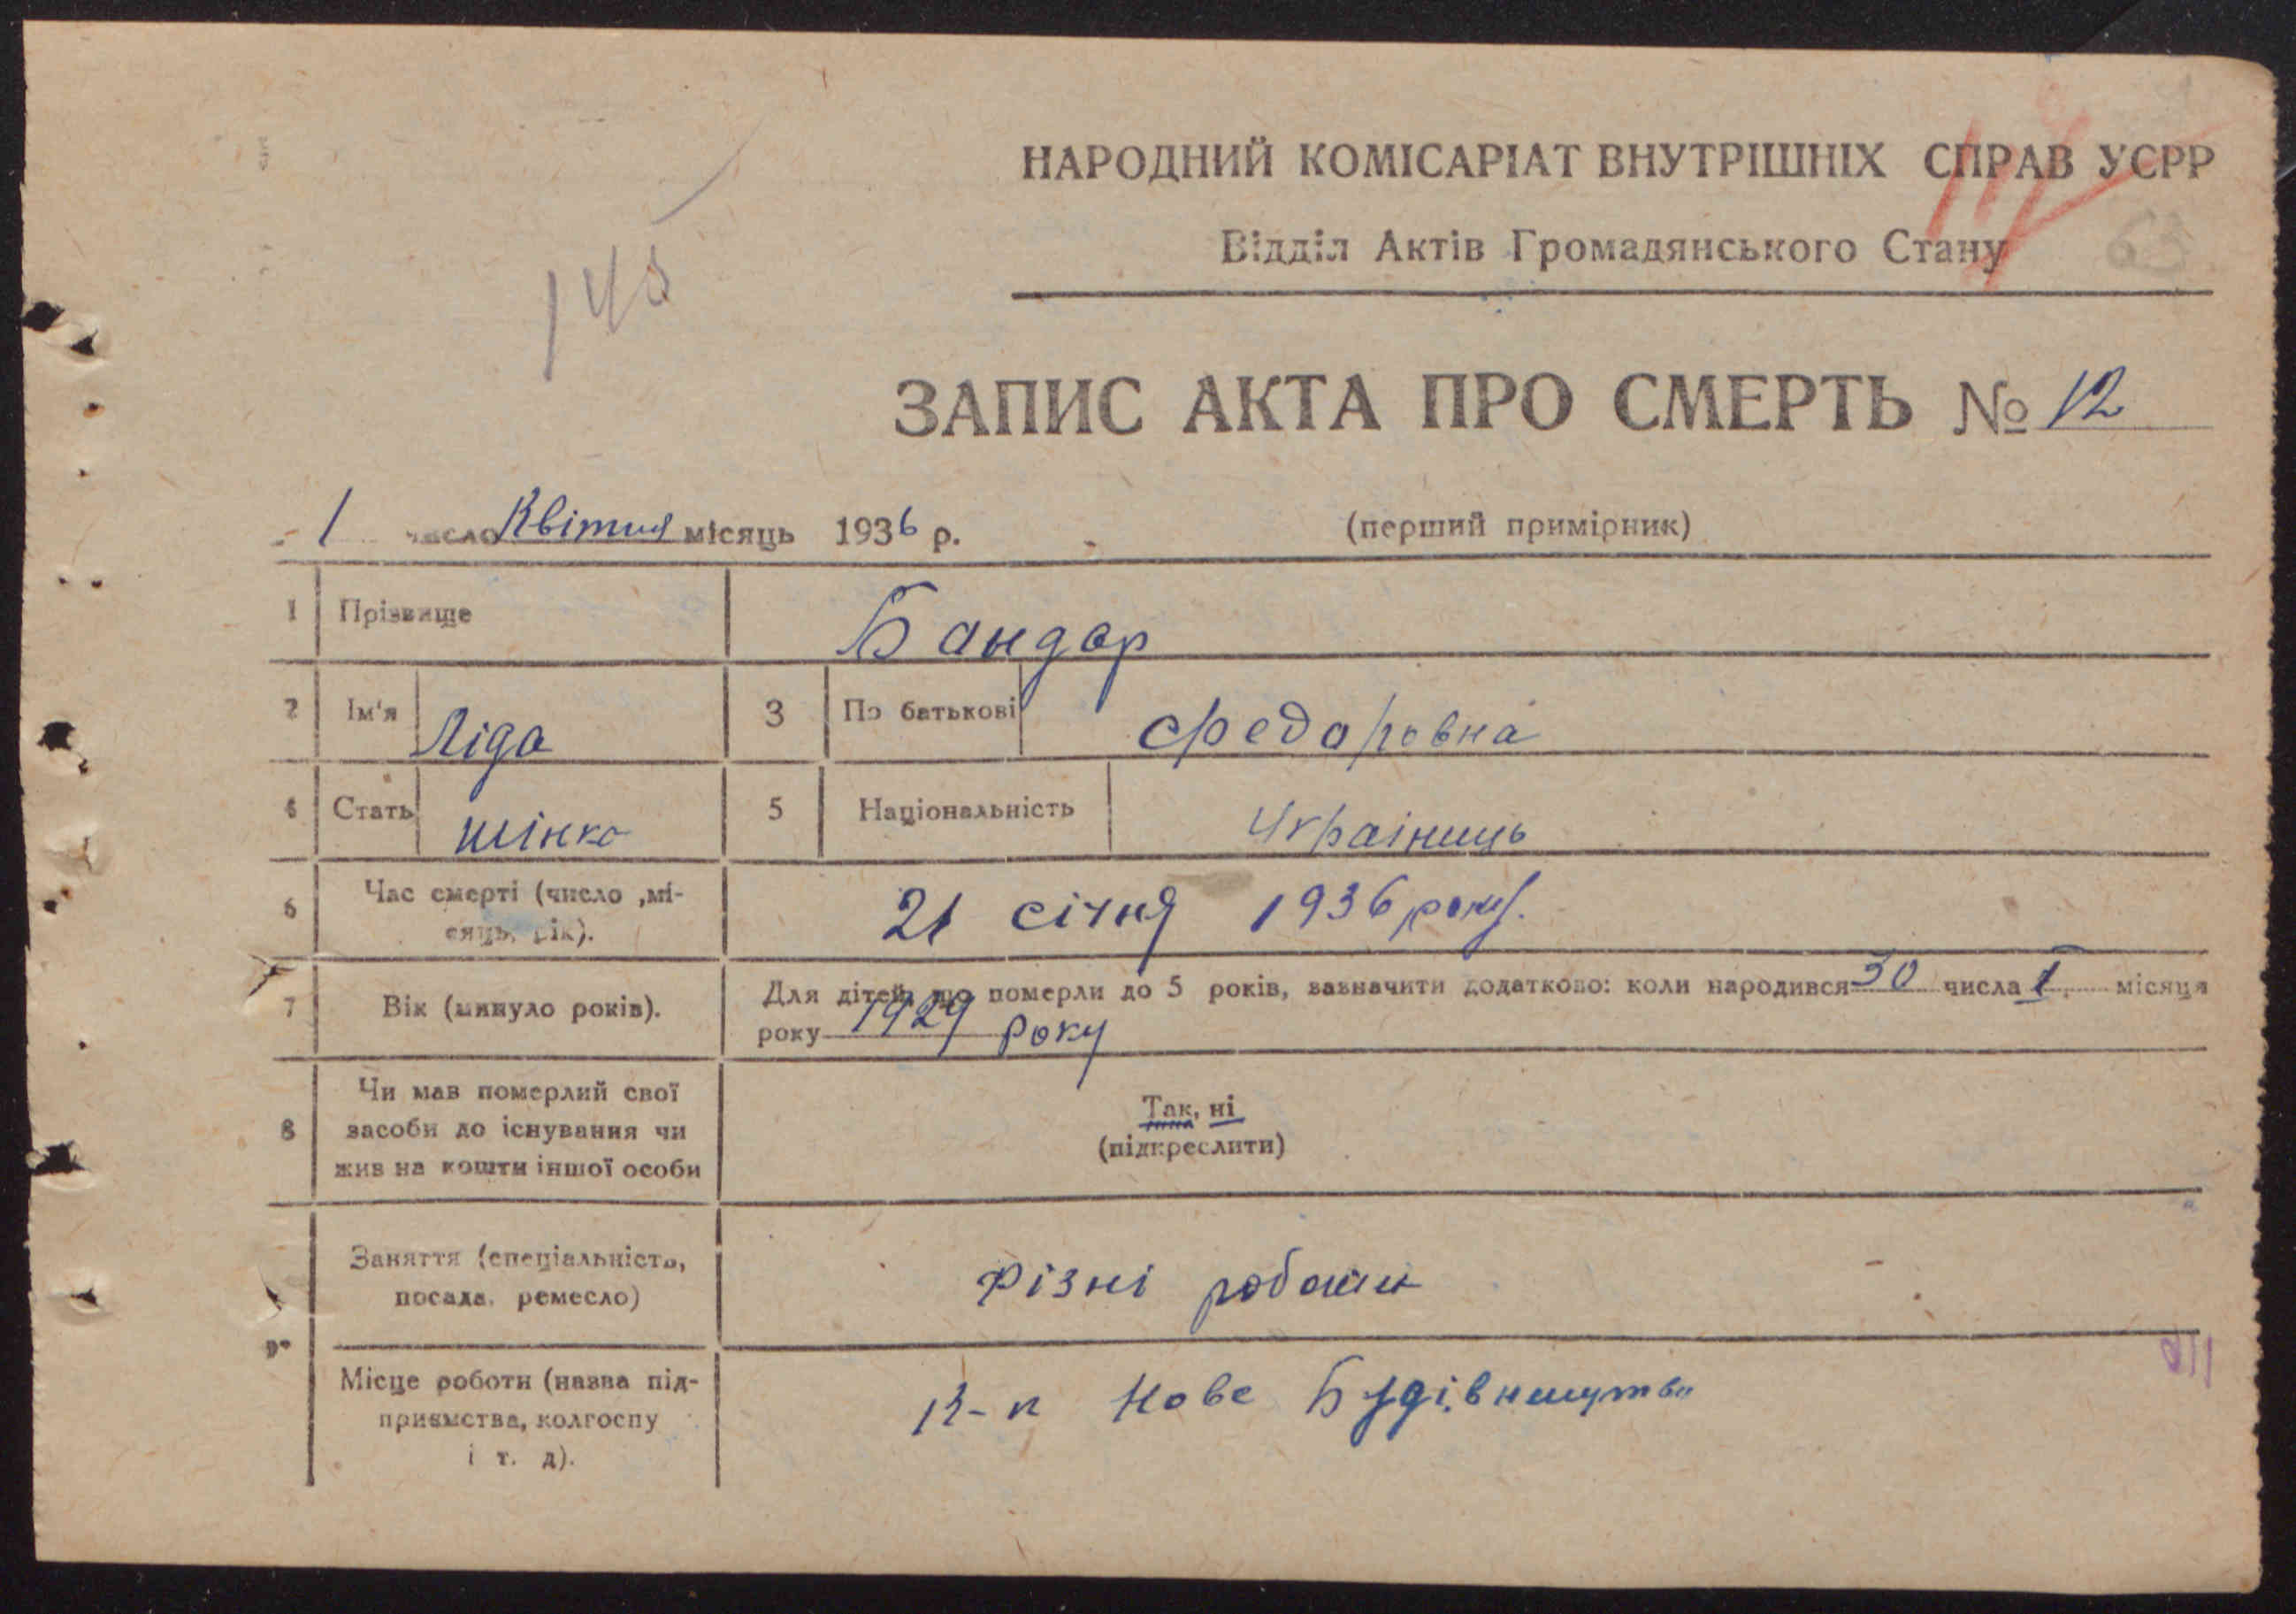 НАРОДНИЙ КОМІСАРІАТ ВНУТРІШНІХ СПРАВ УСРР
Відділ Актів Громадянського Стану
63
145
ЗАПИС АКТА ПРО СМЕРТЬ № 12
1 число Квітня місяць 1936 р. (перший примірник)
1 Прізвище Бандар
2 Ім'я Ліда 3 По батькові Федоровна
4 Стать жінка 5 Національність Українець
6 Час смерті (число ,мі-
сяць, рік). 21 січня 1936 року.
7 Вік (минуло років). Для дітей, що померли до 5 років, зазначити додатково: коли народився 30 числа I місяця
року 1929 року
8 Чи мав померлий свої
засоби до існування чи
жив на кошти іншої особи
Так, ні
(підкреслити)
Заняття (спеціальність,
посада, ремесло) Різні роботи
Місце роботи (назва під-
приємства, колгоспу
і т. д). К-п Нове Будівництво